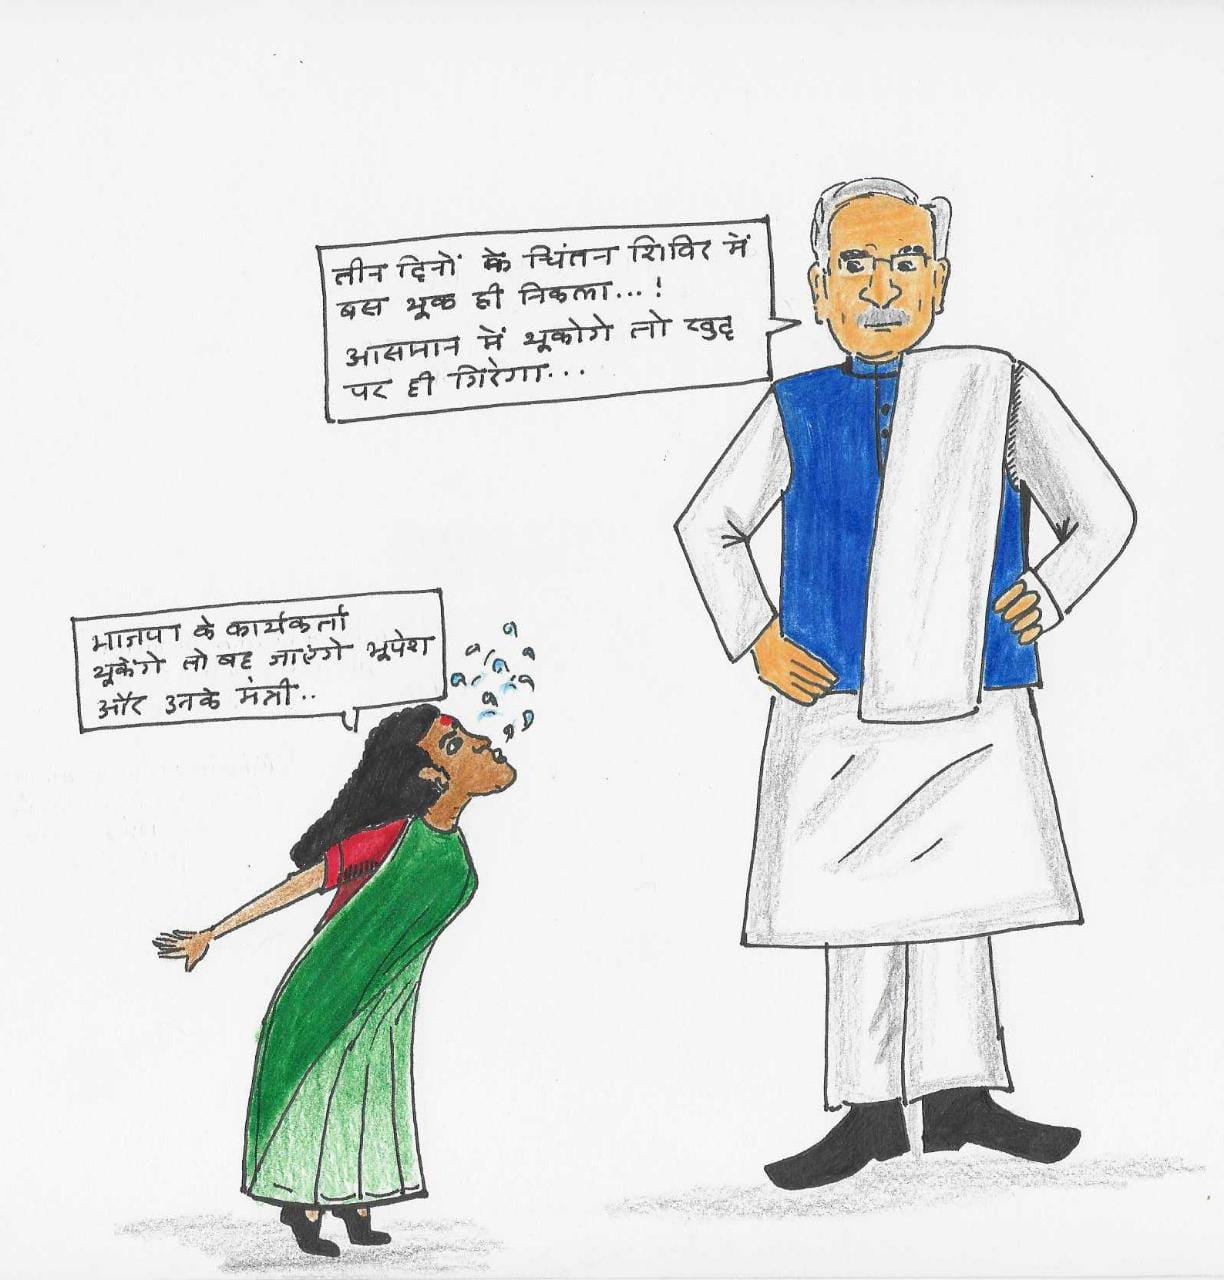 तीन दिनों के चिंतन शिविर में
बस थूक ही निकला...!
आसमान में थूकोगे तो खुद
पर ही गिरेगा...
भाजपा के कार्यकर्ता
थूकेंगे तो बह जाएंगे भूपेश
और उनके मंत्री..